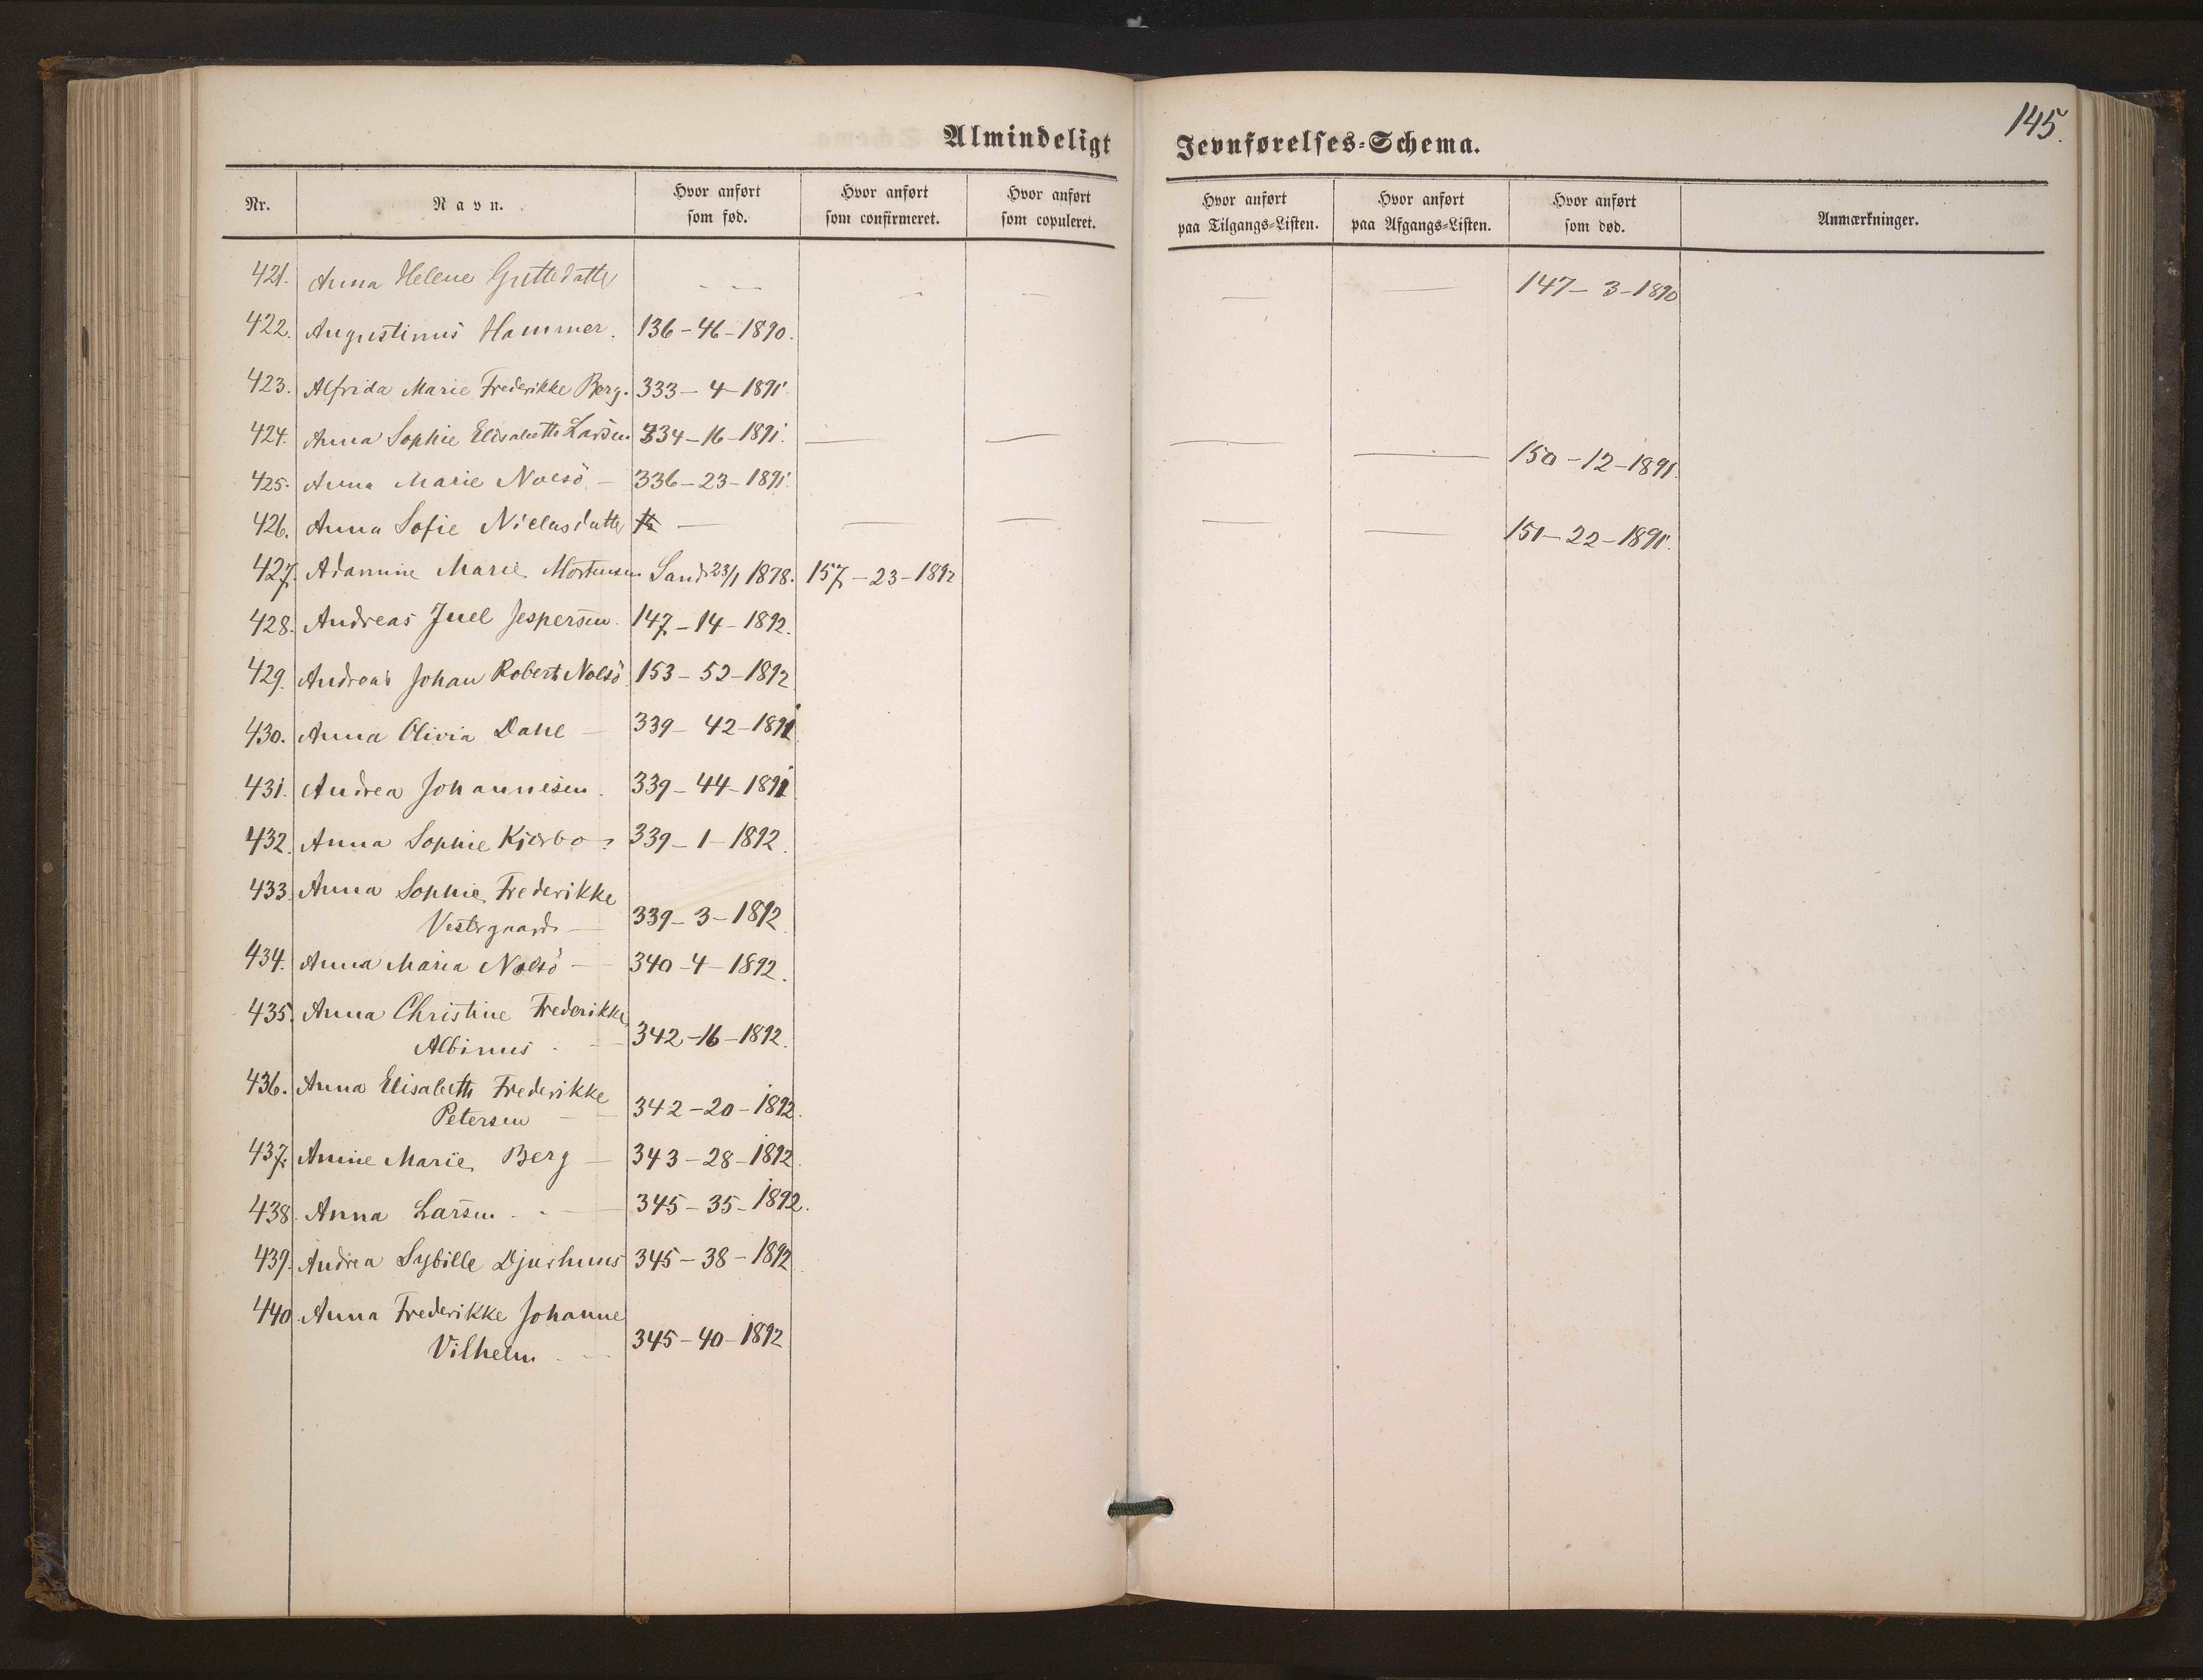 145.
Almindeligt Jevnførelses-Schema.
Nr. Navn. Hvor anført som fød. Hvor anført som confirmeret. Hvor anført som copuleret. Hvor anført paa Tilgangs-Listen. Hvor anført paa Afgangs-Listen. Hvor anført som død. Anmærkninger.
421. Anna Helene Guttedatter — — — — — 147-3-1890
422. Augustinus Hammer. 136-46-1890.
423. Alfrida Marie Frederikke Berg. 333-4-1891.
424. Anna Sophie Elisabeth Larsen 334-16-1891. — — — — 150-12-1891.
425. Anna Marie Nolsö — 336-23-1891.
426. Anna Sofie Niclasdatter — — — — — 151-22-1891.
427. Adamine Marie Mortensen Sand 23/1 1878. 157-23-1892
428. Andreas Juel Jespersen. 147-14-1892.
429. Andreas Johan Robert Nolsö. 153-52-1892
430. Anna Olivia Dahl — 339-42-1891
431. Andrea Johannesen. 339-44-1891
432. Anna Sophie Kjærbo — 339-1-1892.
433. Anna Sophie Frederikke
Vestergaard — 339-3-1892.
434. Anna Maria Nolsö — 340-4-1892.
435. Anna Christine Frederikke
Albinus — 342-16-1892.
436. Anna Elisabeth Frederikke
Petersen — 342-20-1892.
437. Anine Marie Berg — 343-28-1892.
438. Anna Larsen — 345-35-1892.
439. Andrea Sybille Djurhuus 345-38-1892
440. Anna Frederikke Johanne
Vilhelm — 345-40-1892